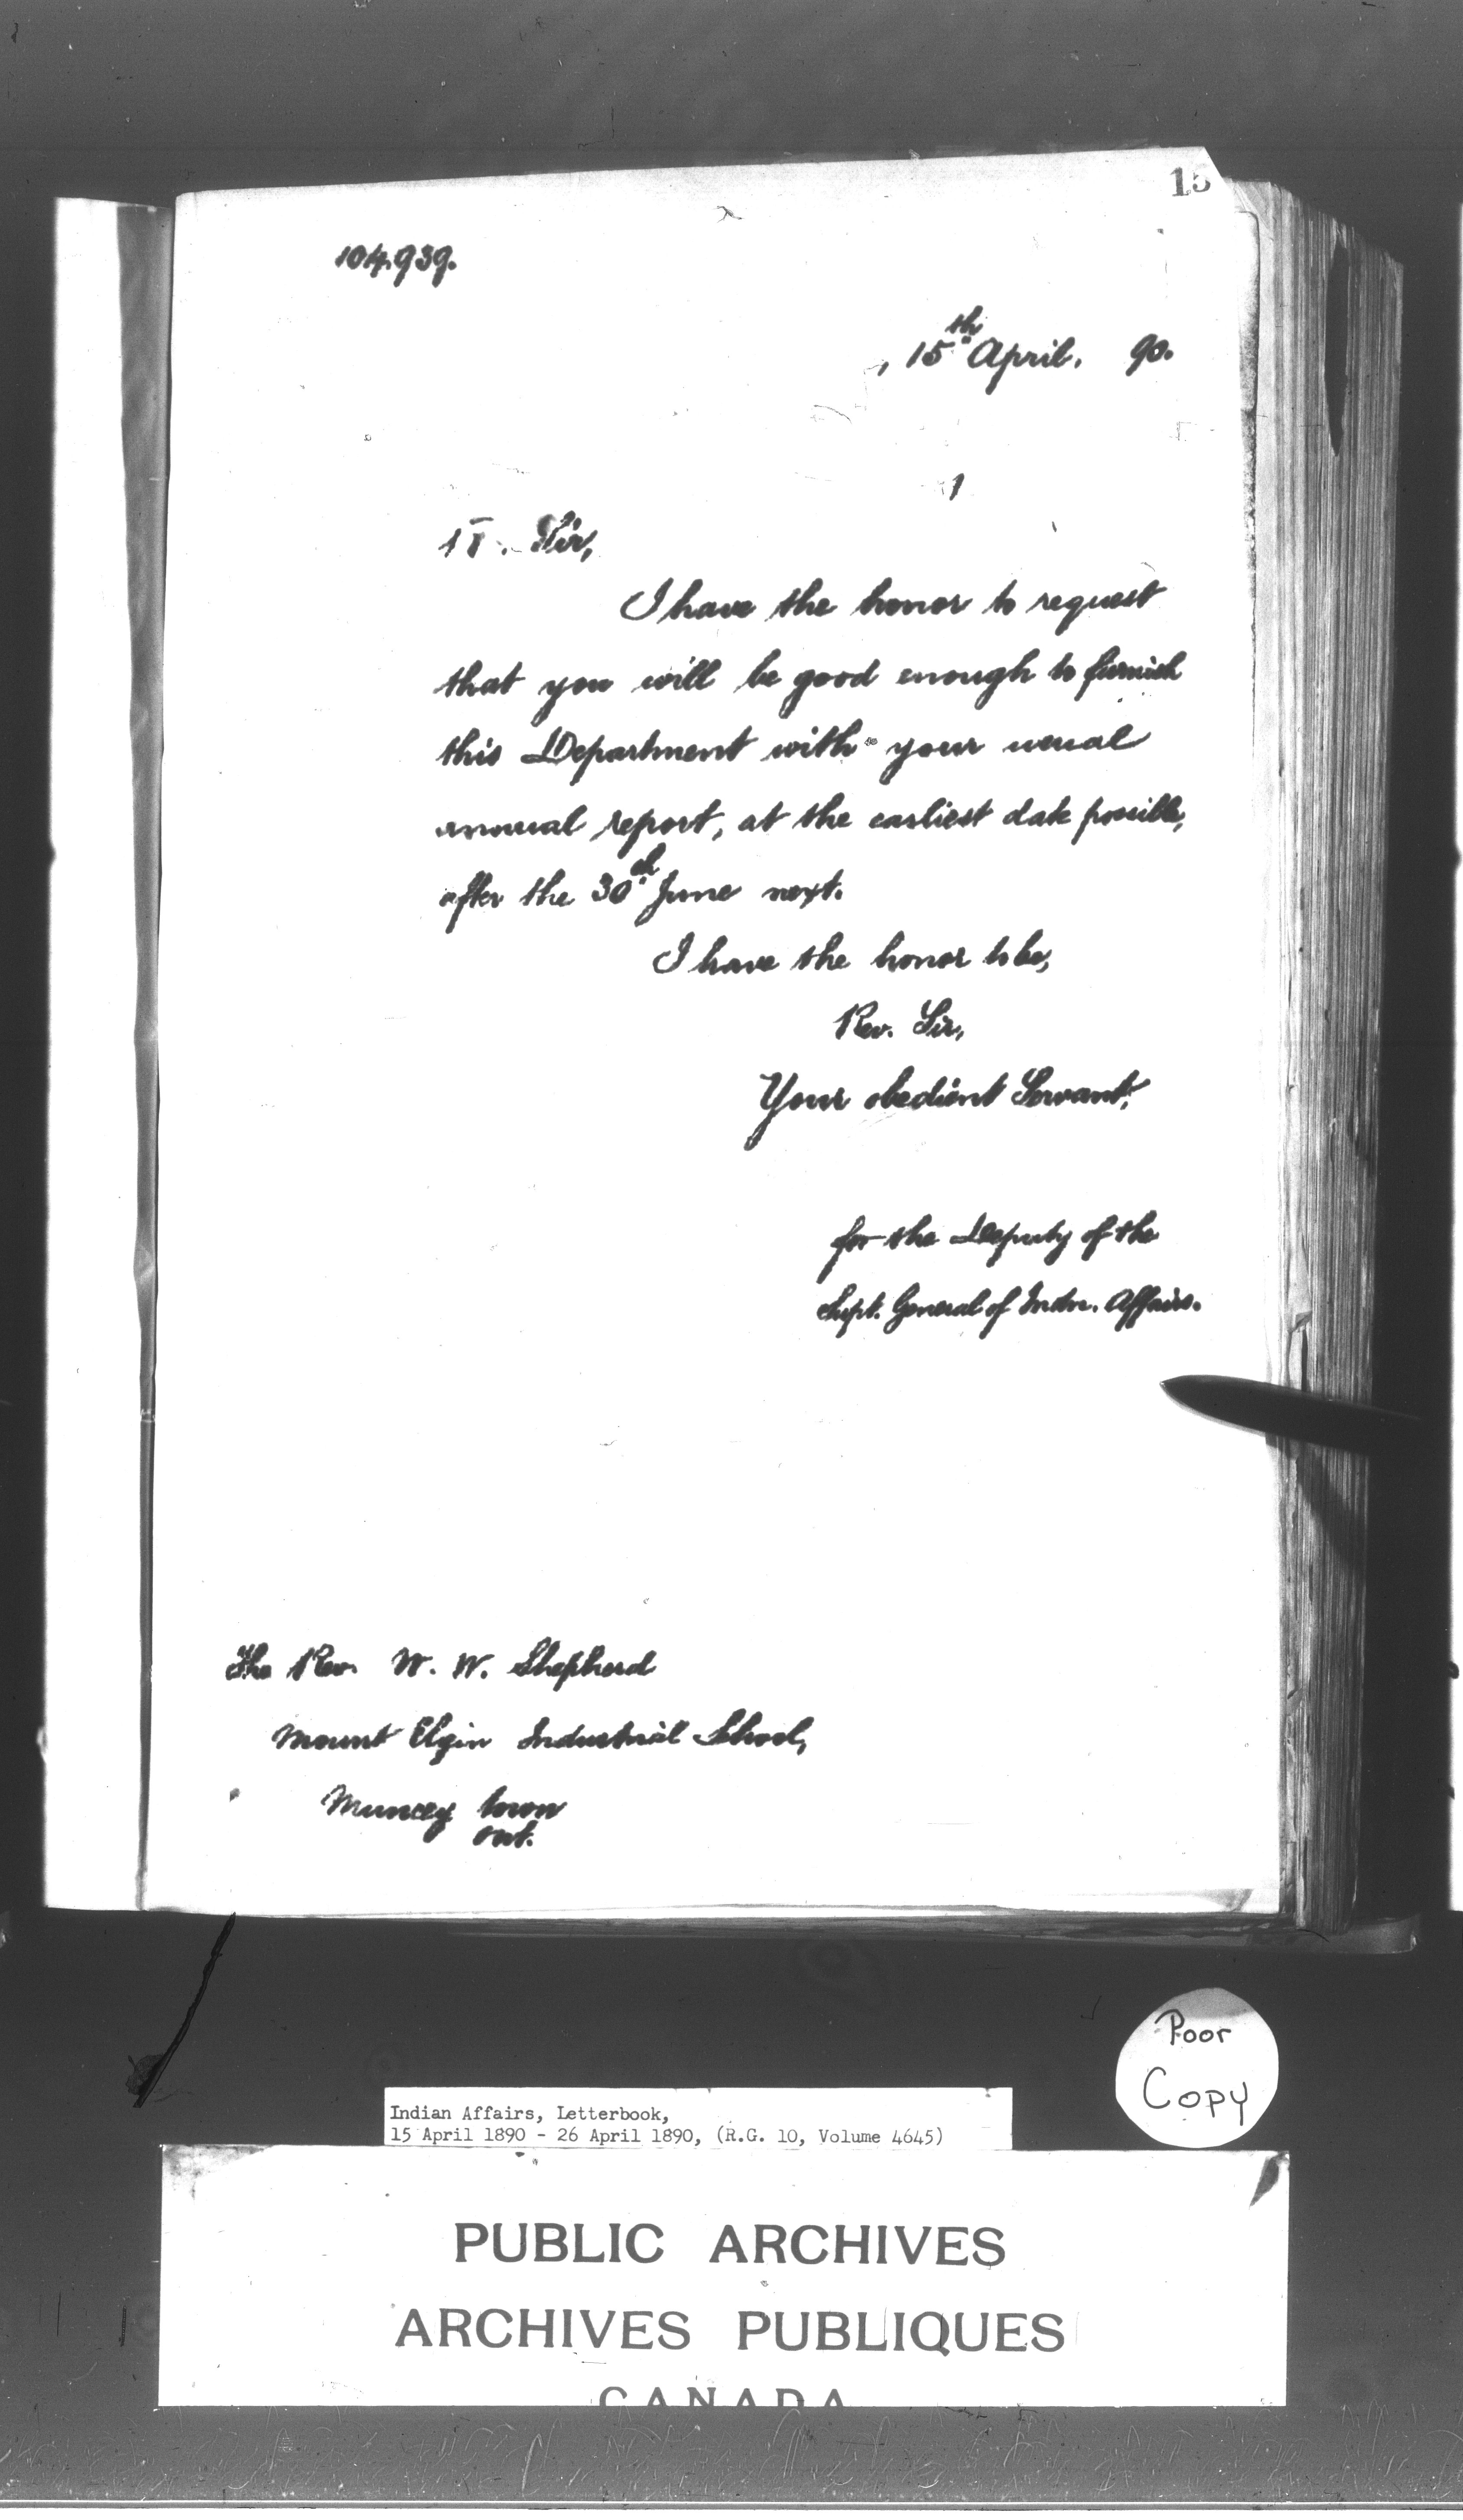 15
104.939.
15th April. 90.
Sir,
I have the honor to request
that you will be good enough to furnish
this Department with your usual
annual report, at the earliest date possible,
after the 30th June next.
I have the honor to be,
Rev. Sir,
Your obedient Servant,
for the Deputy of the
Supt. General of Indn. Affairs.
The Rev. W. W. Shepherd
Mount Elgin Industrial School,
Muncey town
Ont.
Poor
Copy
Indian Affairs, Letterbook,
15 April 1890 - 26 April 1890, (R.G. 10, Volume 4645)
PUBLIC ARCHIVES
ARCHIVES PUBLIQUES
CANADA